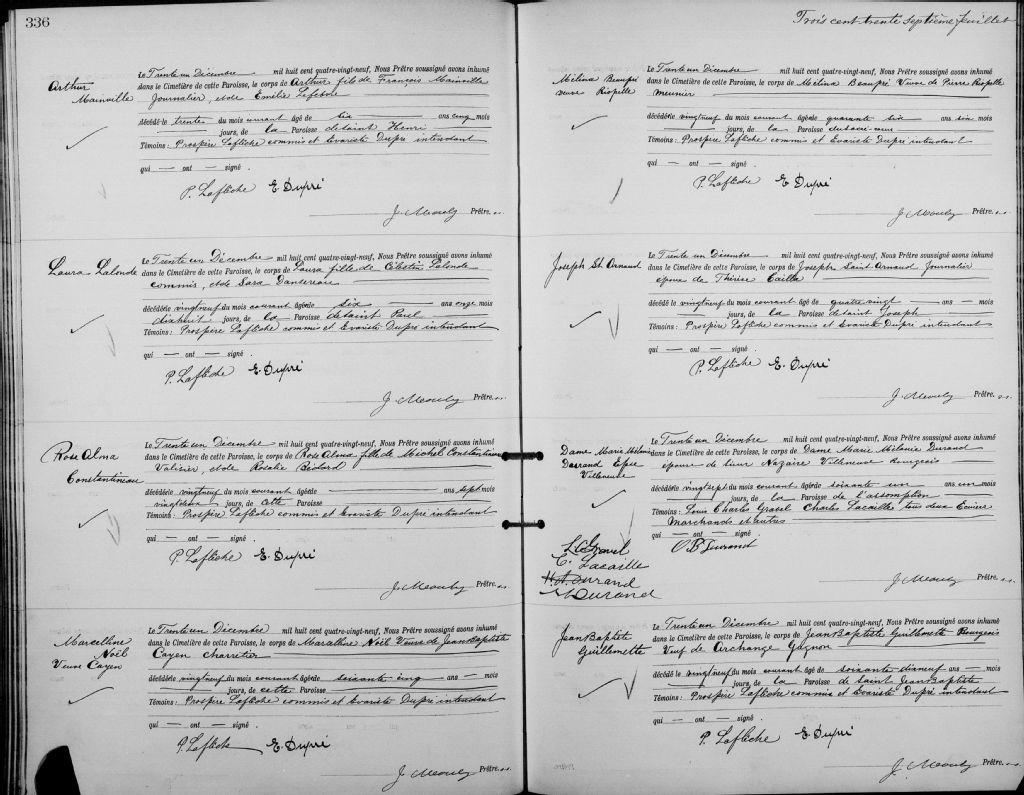 336
Arthur
Mainville
Le Trente un Décembre mil huit cent quatre-vingt-neuf, Nous Prêtre soussigné avons inhumé
dans le Cimetière de cette Paroisse, le corps de Arthur fils de François Mainville
Journalier, et de Emélie Lefebvre
décédé le trente du mois courant âgé de six ans cinq mois
jours, de la Paroisse de Saint Henri
Témoins : Prospère Laflèche commis et Evariste Dupré intendant
qui — ont — signé .
P. Laflèche E. Dupré
J. Meouly Prêtre. s.s.
Laura Lalonde
Le Trente un Décembre mil huit cent quatre-vingt-neuf, Nous Prêtre soussigné avons inhumé
dans le Cimetière de cette Paroisse, le corps de Laura fille de Célestin Lalonde
commis, et de Sara Dansereau
décédé le vingtneuf du mois courant âgée de six — ans onze mois
dixhuit jours, de la Paroisse de Saint Paul
Témoins : Prospère Laflèche commis et Evariste Dupré intendant
qui — ont — signé .
P. Laflèche E. Dupré
J. Meouly Prêtre. s.s.
Rose Alma
Constantineau
Le Trente un Décembre mil huit cent quatre-vingt-neuf, Nous Prêtre soussigné avons inhumé
dans le Cimetière de cette Paroisse, le corps de Rose Alma fille de Michel Constantineau
Voliier, et de Rosalie Bédard
décédé le vingtneuf du mois courant âgée de ans sept mois
vingtdeux jours, de cette Paroisse
Témoins : Prospère Laflèche commis et Evariste Dupré intendant
qui — ont — signé .
P. Laflèche E. Dupré
J. Meouly Prêtre. s.s.
Marcelline
Noël
Veuve Cayen
Le Trente un Décembre mil huit cent quatre-vingt-neuf, Nous Prêtre soussigné avons inhumé
dans le Cimetière de cette Paroisse, le corps de Marcelline Noël Veuve de Jean Baptiste
Cayen charretier
décédé le vingtneuf du mois courant âgée de soixante cinq — ans — mois
jours, de cette Paroisse
Témoins : Prospère Laflèche commis et Evariste Dupré intendant
qui — ont — signé .
P. Laflèche E. Dupré
J. Meouly Prêtre. s.s.
Trois cent trente septième feuillet
Mélina Beaupré
veuve Riopelle
Le Trente un Décembre mil huit cent quatre-vingt-neuf, Nous Prêtre soussigné avons inhumé
dans le Cimetière de cette Paroisse, le corps de Mélina Beaupré Veuve de Pierre Riopelle
meunier
décédé le vingtneuf du mois courant âgée de quarante six ans six mois
jours, de la Paroisse du Sacré-coeur
Témoins : Prospère Laflèche commis et Evariste Dupré intendant
qui — ont — signé .
P. Laflèche E. Dupré
J. Meouly Prêtre. s.s.
Joseph St. Arnaud
Le Trente un Décembre mil huit cent quatre-vingt-neuf, Nous Prêtre soussigné avons inhumé
dans le Cimetière de cette Paroisse, le corps de Joseph Saint Arnaud Journalier
époux de Thérèse Cailla
décédé le vingtneuf du mois courant âgé de quatre vingt — ans — mois
— jours, de la Paroisse de Saint Joseph
Témoins : Prospère Laflèche commis et Evariste Dupré intendant
qui — ont — signé .
P. Laflèche E. Dupré
J. Meouly Prêtre. s.s.
Dame Marie Mélanie
Durand Epse
Villeneuve
Le Trente un Décembre mil huit cent quatre-vingt-neuf, Nous Prêtre soussigné avons inhumé
dans le Cimetière de cette Paroisse, le corps de Dame Marie Mélanie Durand
épouse de Sieur Nazaire Villeneuve Bourgeois
décédé le vingtsept du mois courant âgée de soixante un ans un mois
jours, de la Paroisse de l'assomption
Témoins : Louis Charles Gravel Charles Lacaille tous deux Ecuiers
Marchands et autres
qui — ont — signé —
L.C. Gravel
O B Durand
C. Lacaille
H. A. Durand
Durand
J. Meouly Prêtre. s.s.
Jean Baptiste
Guillemette
Le Trente un Décembre mil huit cent quatre-vingt-neuf, Nous Prêtre soussigné avons inhumé
dans le Cimetière de cette Paroisse, le corps de Jean Baptiste Guillemette Bourgeois
Veuf de Archange Gagnon
décédé le vingtneuf du mois courant âgé de soixante dixneuf ans — mois
jours, de la Paroisse de Saint Jean Baptiste
Témoins : Prospère Laflèche commis et Evariste Dupré intendant
qui — ont — signé .
P. Laflèche E. Dupré
J. Meouly Prêtre. s.s.